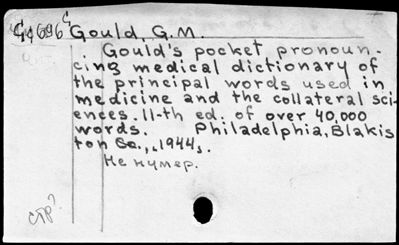 G696 Gould, G.M.
Gould's pocket pronoun-
cing medical dictionary of
the principal words used in
medicine and the collateral sci-
ences. 11-th ed. of over 40,000
words. Philadelphia, Blakis
ton Co., 1944.
Не нумер.
стр?